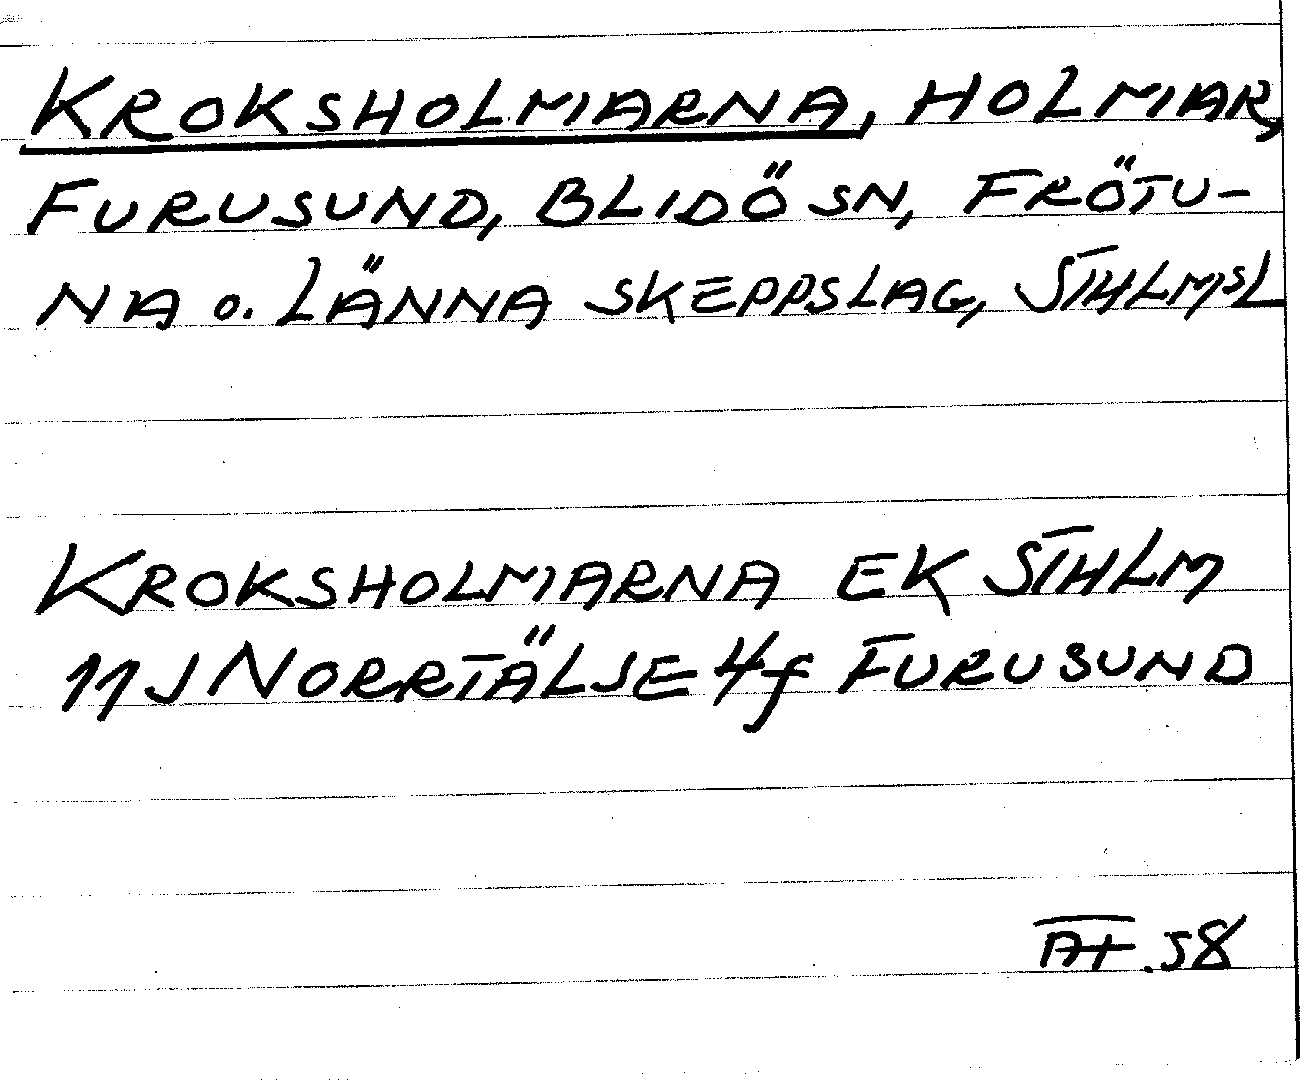 KROKSHOLMARNA, HOLMAR,
FURUSUND, BLIDÖ SN, FRÖTU-
NA o. LÄNNA SKEPPSLAG, STHLMSL
KROKSHOLMARNA EK STHLM
11J NORRTÄLJE 4f FURUSUND